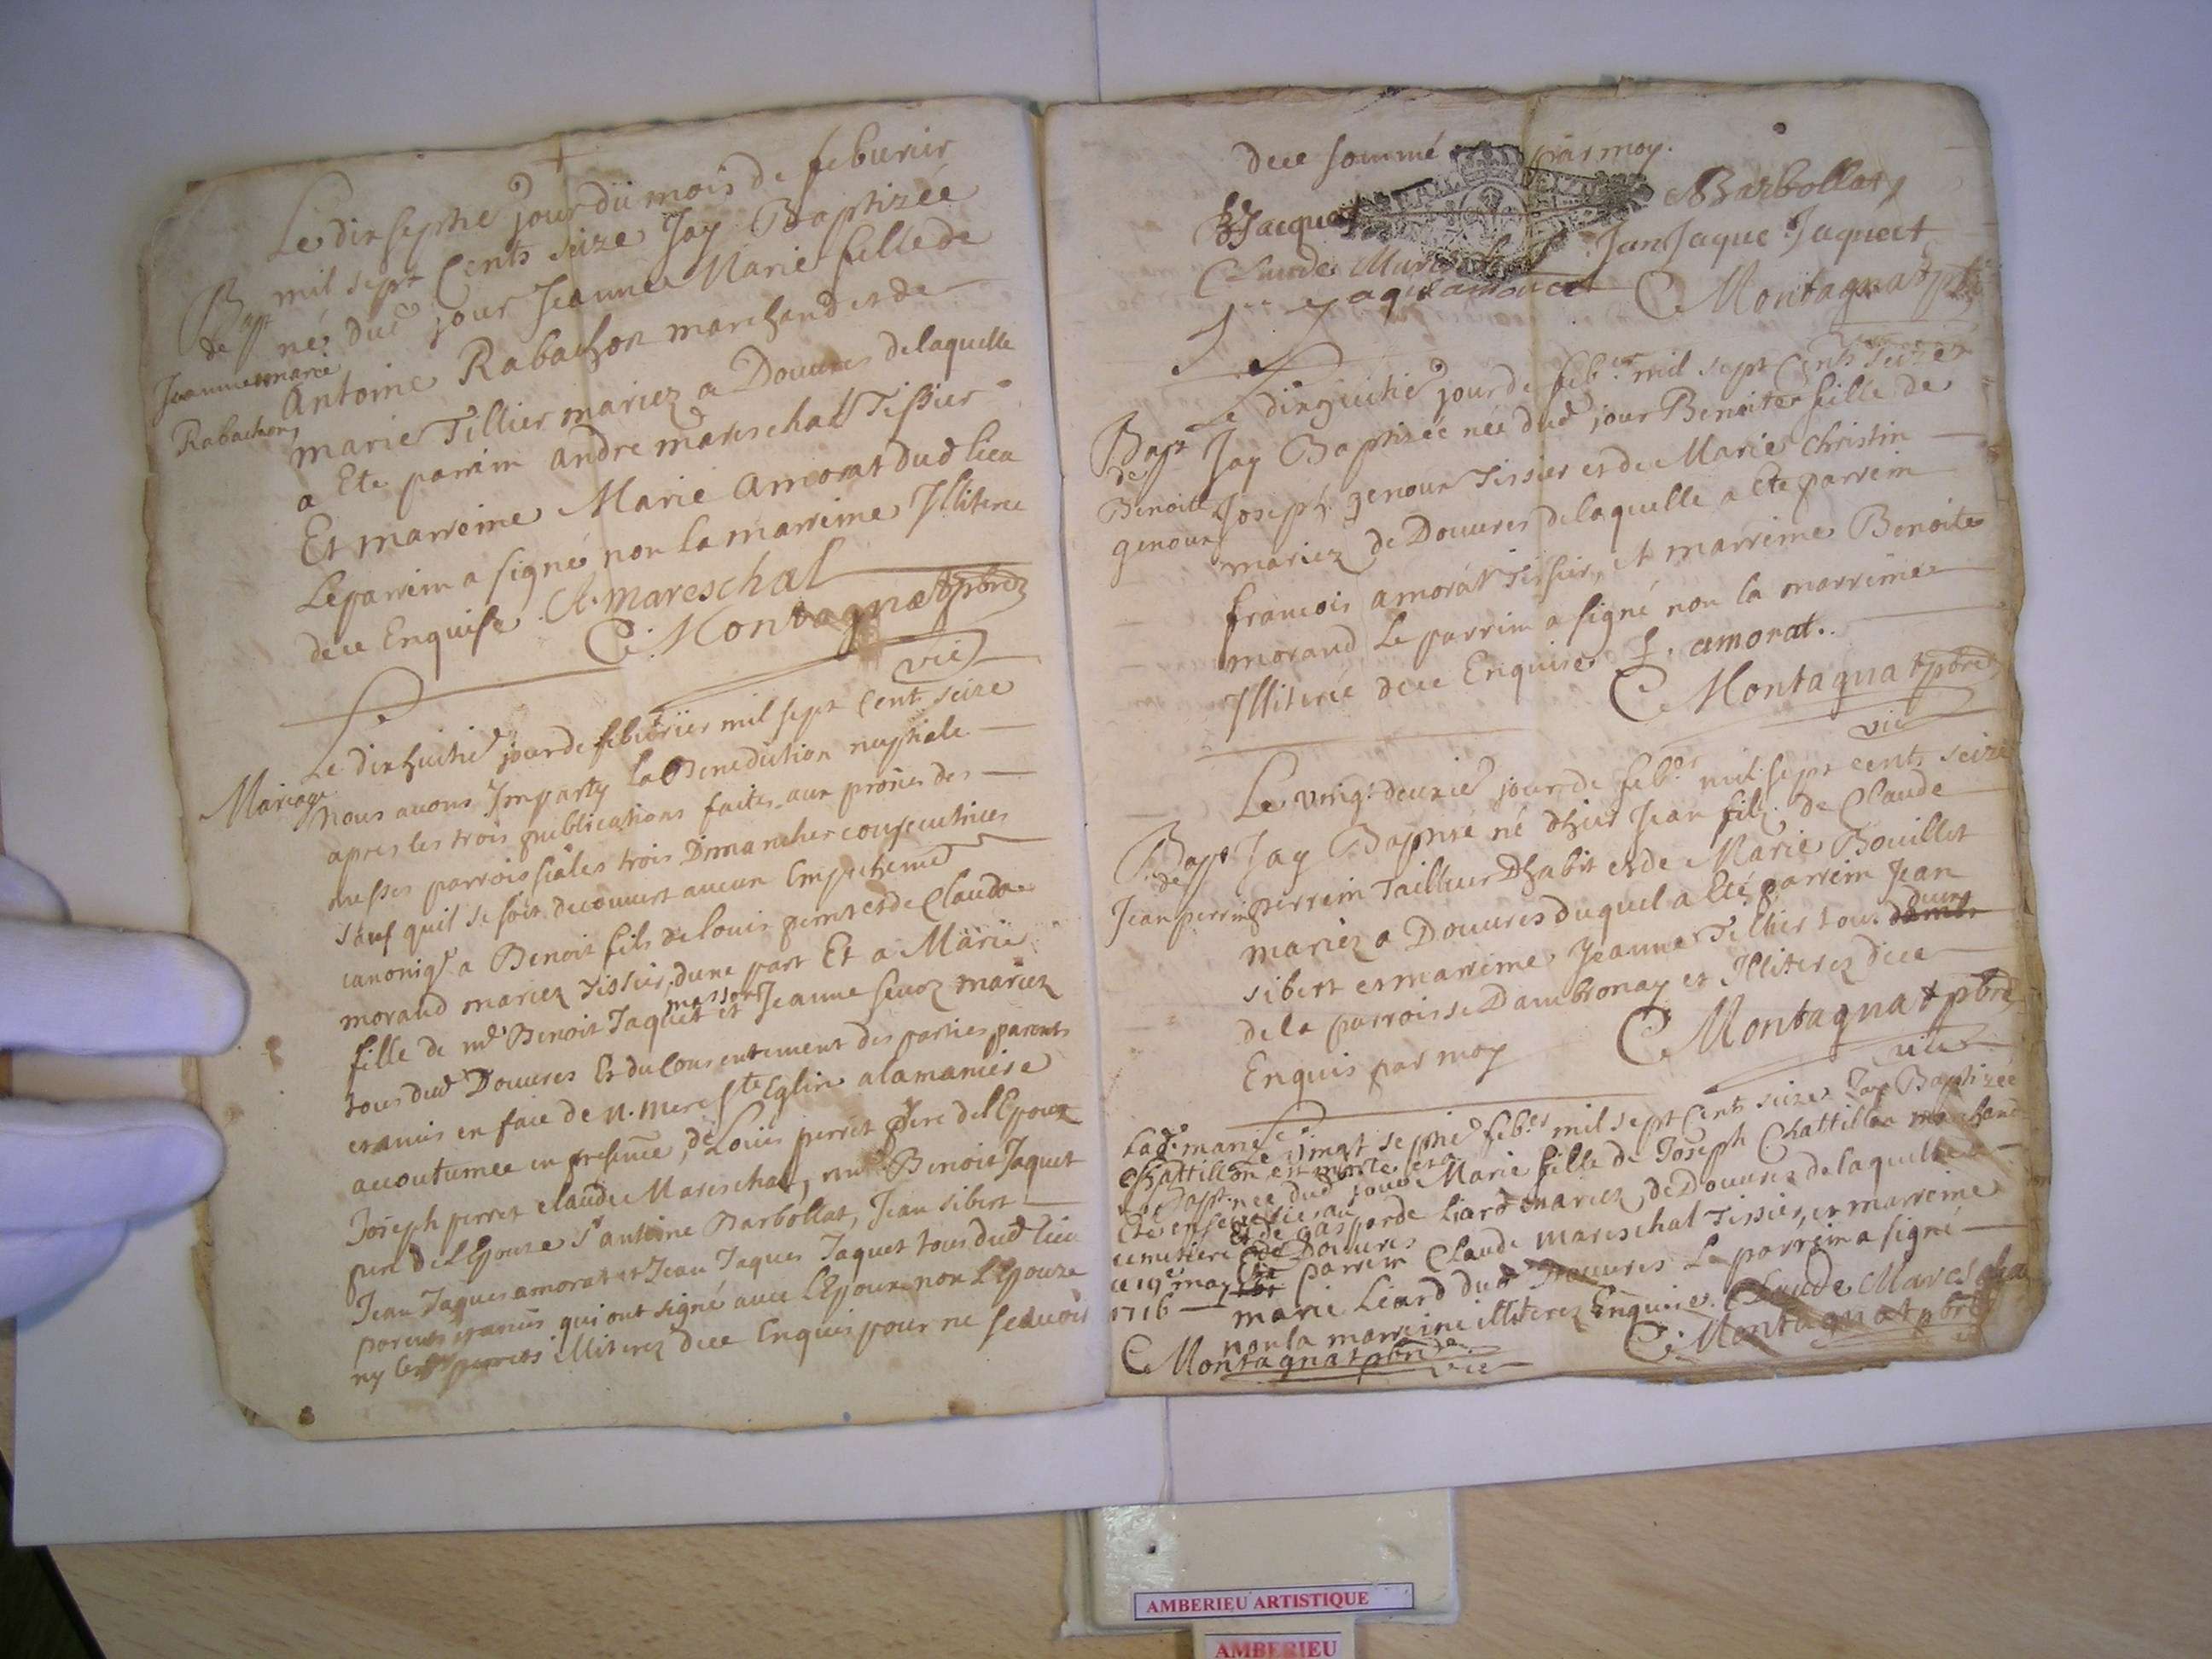 Le dixseptie jour du mois de feburier
mil sept Cents seize Jay Baptizée
née dud jour Jeanne Marie fille de
Antoine Rabachon marchand et de
marie Tillier mariez a Douures delaquelle
a Ete parrim andre mareschal Tissier
Et marreine Marie amorat dud lieu
Le parrim a signé non la marrime Illiteree
dece Enquise. A. mareschal
C. Montagnat pbre
vic
Bapt
de
Jeanne marie
Rabachon
Le dixhuitie jour de feburier mil sept Cent seize
Mariage
nous auons Imparty la Benediction nuptiale
apres les trois publications faites aux prones des
messes parroissiales trois Dimanches consecutiues
sauf quil se soit decouuert aucun Empecheme
canoniq a Benoit fils de Louis perret et de Clauda
morand mariez tissier, dune part Et a Marie
fille de me Benoit Jaquet masson et Jeanne seuoz mariez
tous dud Douures Et du Consentement des parties parents
et amis en face de n. mere Ste Eglise alamaniere
accoutumee en presence, de Louis perret pere del Epoux
Joseph perret claude Mareschal, me Benoit Jaquet
pere de L Epouse Sr antoine Barbollat, Jean sibert
Jean Jaques amorat et Jean Jaques Jaquet tous dud lieu
parents et amis qui ont signé auec L Epoux non L Epouze
ny les perrets illiterez dece Enquis pour ne scauoir
dece sommé par moy.
B Jacquet
A Barbollat
Claude Mareschal
Jan Jaque Jaquet
J. Jaque amorat
C Montagnat pbre
Le dixhuitie jour de feb.er mil sept Cents seize
Bapt
de
Benoitte
genoux
Jay Baptizée née dud jour Benoite fille de
Joseph genoux Tissier et de Marie Christin
mariez de Douures delaquelle a Ete parrein
francois amorat Tissier, et marreime Benoite
morand Le parrim a signé non la marreime
Illiterée dece Enquise f. amorat.
C Montagnat pbre
vic
Le vingt deuxie jour de feb.er mil sept cents seize
Bapt
de
Jean perrin
Jay Baptisé né dhier Jean fils de Claude
perrein Tailleur Dhabit et de Marie Bouillet
mariez a Douures duquel a Eté parrein Jean
sibert et marreime Jeanne Tillier tous deux
de la parroisse Dambronay et Illiterez dece
Enquis par moy
C Montagnat pbre
vic
Le vingt septie feb.er mil sept Cents seize Jay Baptizée
née dud jour Marie fille de Joseph Chattillon marchand
Et de gasparde Liard mariez, de Douures delaquelle a
Ete parrim Claude mareschal Tissier, et marreime
marie Liard dud Douures Le parreim a signé
non la marreime illiterez Enquise. Claude Mareschal
C. Montagnat pbre
vic
Lad.e marie
Chattillon est morte et a
Ete enseuelie au
cemitiere de Douures
ce 19e may
1716
C Montagnat pbre
vic
AMBERIEU ARTISTIQUE
AMBERIEU